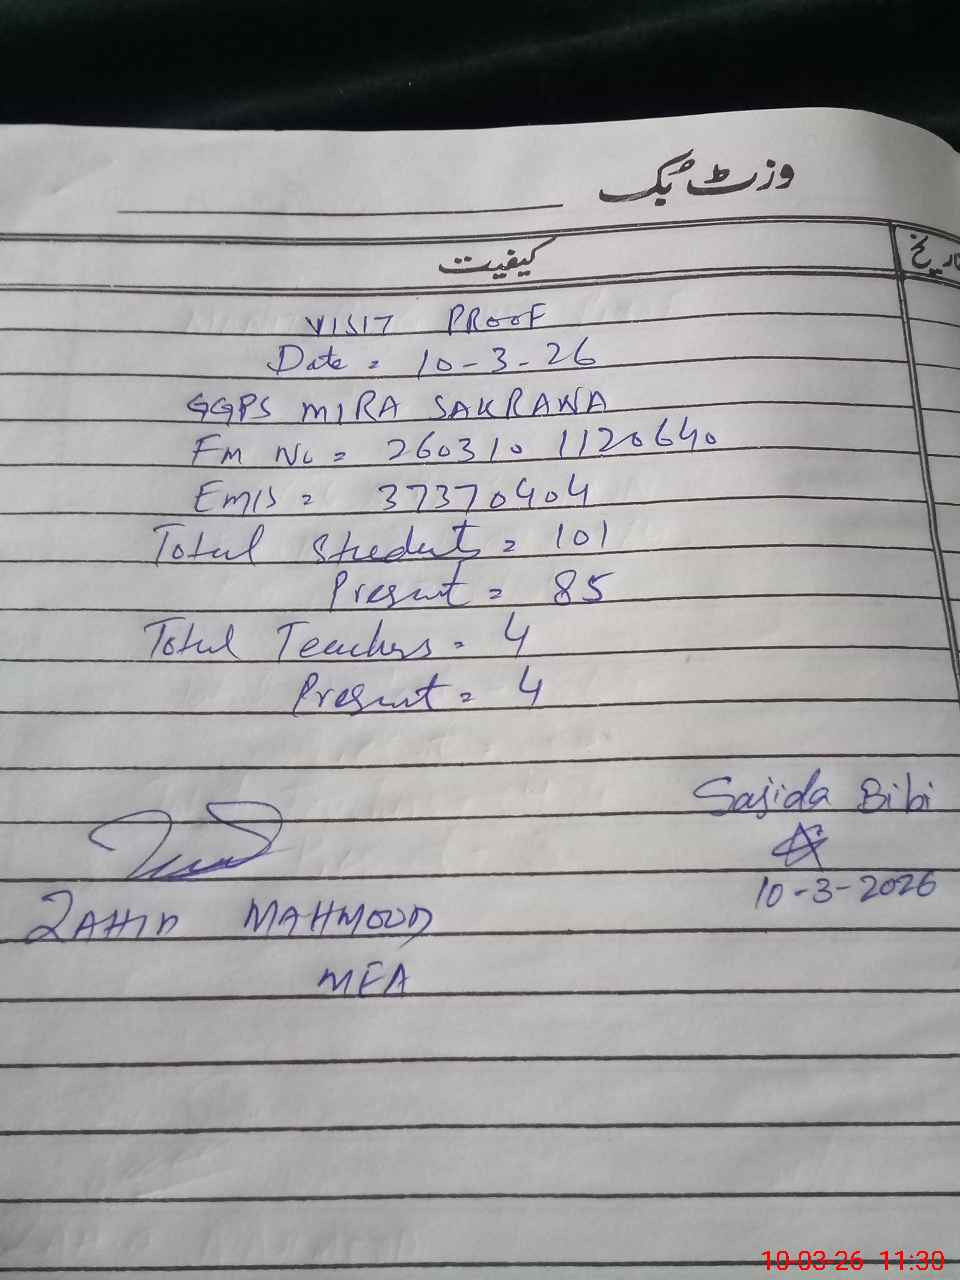 وزٹ بک
کیفیت
تاریخ
VISIT PROOF
Date = 10-3-26
GGPS MIRA SAKRANA
Fm No = 260310 1120640
Emis = 37370404
Total Students = 101
Present = 85
Total Teachers = 4
Present = 4
Sajida Bibi
10-3-2026
ZAHID MAHMOOD
MEA
10-03-26 11:30